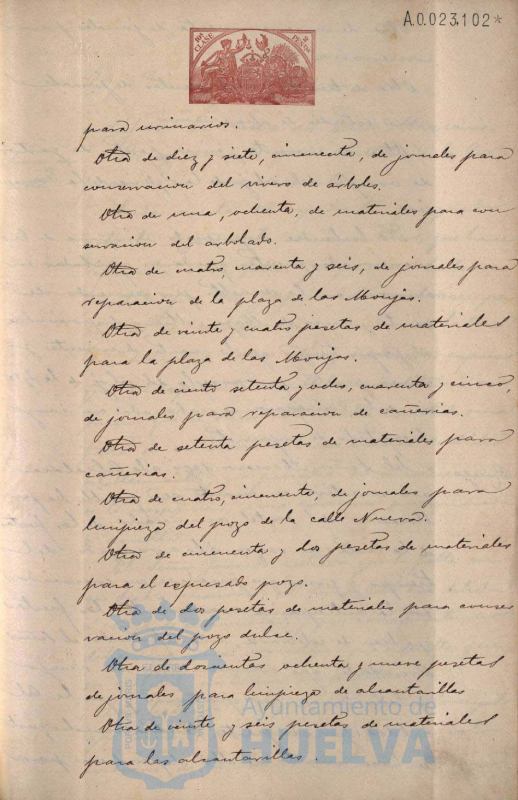 A.0.023.102*
10ª CLASE 2 PTAS
para urinarios.
Otra de diez y siete, cincuenta, de jornales para
conservacion del vivero de árboles.
Otra de una, ochenta, de materiales para con
servacion del arbolado.
Otra de cuatro, cuarenta y seis, de jornales para
reparacion de la plaza de las Monjas.
Otra de veinte y cuatro pesetas de materiales
para la plaza de las Monjas.
Otra de ciento setenta y ocho, cuarenta y cinco,
de jornales para reparacion de cañerias.
Otra de setenta pesetas de materiales para
cañerias.
Otra de cuatro, cincuenta, de jornales para
limpieza del pozo de la calle Nueva.
Otra de cincuenta y dos pesetas de materiales
para el expresado pozo.
Otra de dos pesetas de materiales para conser
vacion del pozo dulce.
Otra de doscientas ochenta y nueve pesetas
de jornales para limpieza de alcantarillas
Otra de veinte y seis pesetas de materiales
para las alcantarillas.
Ayuntamiento de
HUELVA